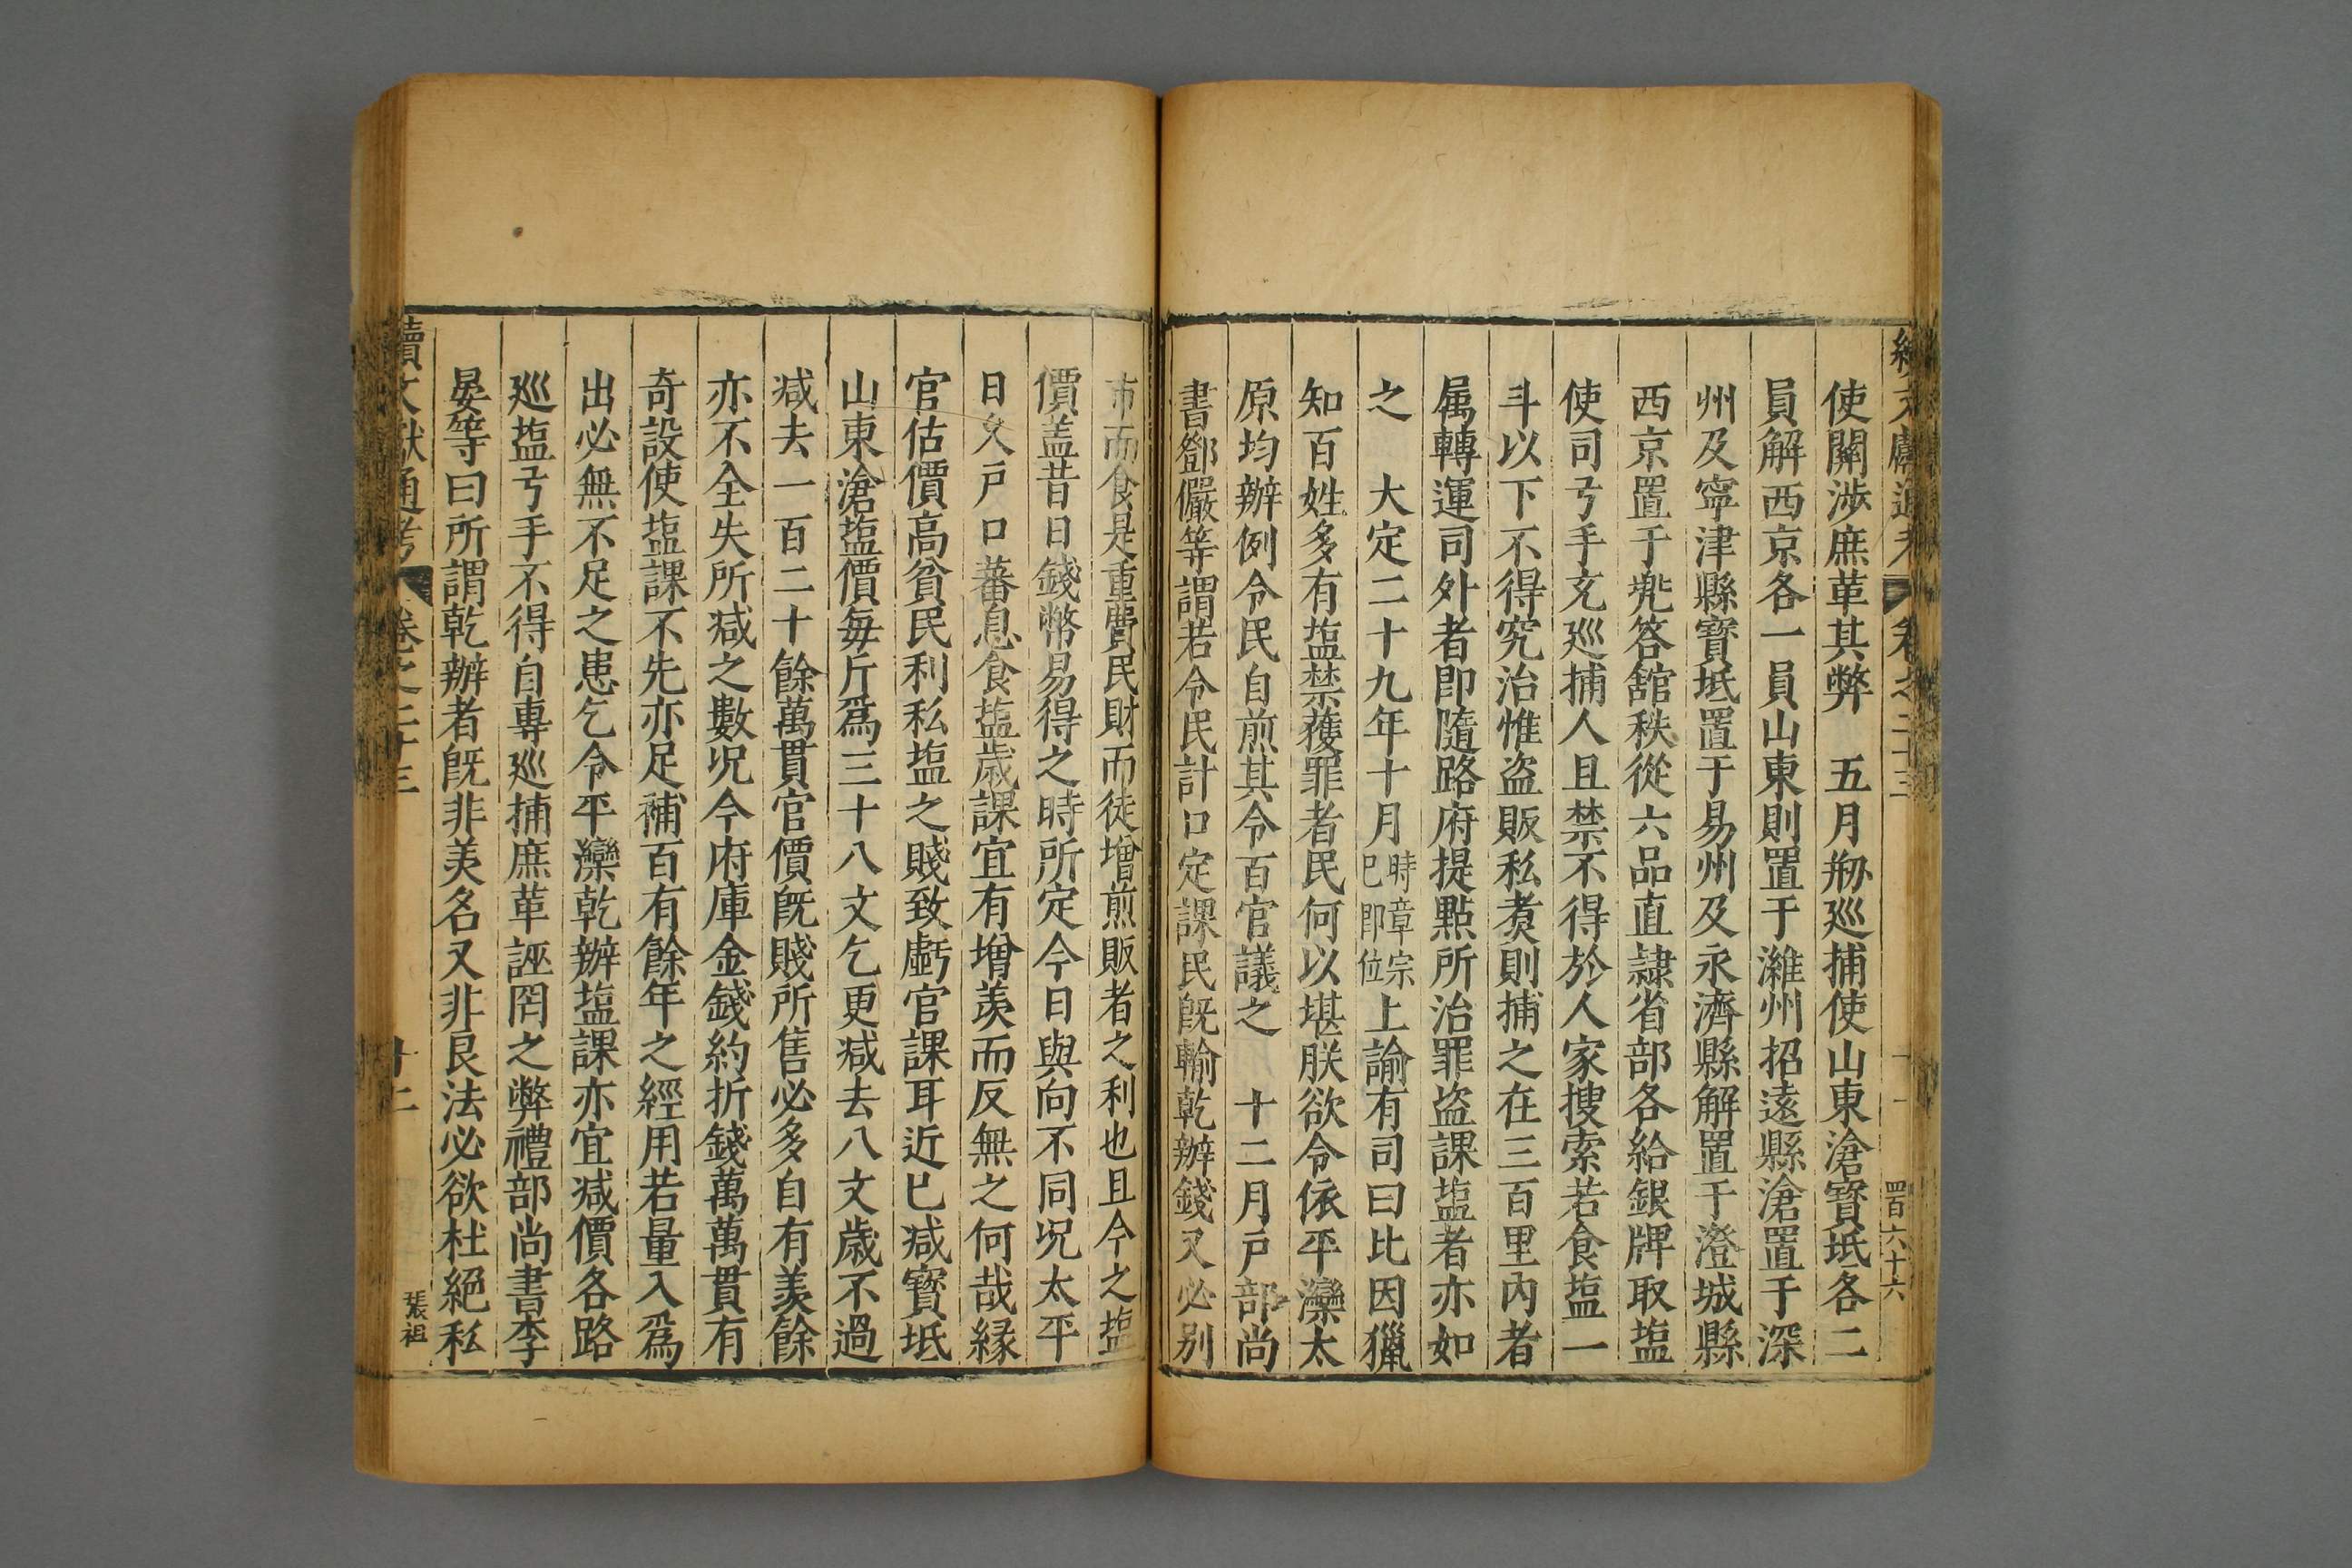 續文獻通考 卷之二十三
四百六十六
使闗渉庶革其弊 五月剏巡捕使山東滄寳坻各二
員解西京各一員山東則置于濰州招遠縣滄置于深
州及寜津縣寳坻置于易州及永濟縣解置于澄城縣
西京置于兠答舘秩從六品直隷省部各給銀牌取塩
使司弓手充巡捕人且禁不得於人家搜索若食塩一
斗以下不得究治惟盗販私煑則捕之在三百里內者
属轉運司外者即隨路府提點所治罪盗課塩者亦如
之 大定二十九年十月時章宗已即位上諭有司曰比因獵
知百姓多有塩禁獲罪者民何以堪朕欲令依平灤太
原均辦例令民自煎其令百官議之 十二月戸部尚
書鄧儼等謂若令民計口定課民旣輸乾辦錢又必别
市而食是重費民財而徒增煎販者之利也且今之塩
價盖昔日錢幣易得之時所定今日與向不同况太平
日久戸口蕃息食塩歳課宜有增羨而反無之何哉縁
官估價高貧民利私塩之賤致虧官課耳近已减寳坻
山東滄塩價每斤爲三十八文乞更减去八文歳不過
减去一百二十餘萬貫官價旣賤所售必多自有羨餘
亦不全失所减之數况今府庫金錢約折錢萬萬貫有
奇設使塩課不先亦足補百有餘年之經用若量入爲
出必無不足之患乞令平灤乾辦塩課亦宜减價各路
巡塩弓手不得自專巡捕庶革誣罔之弊禮部尚書李
晏等曰所謂乾辦者旣非美名又非良法必欲杜絕私
續文獻通考 卷之二十三 廿二
張祖